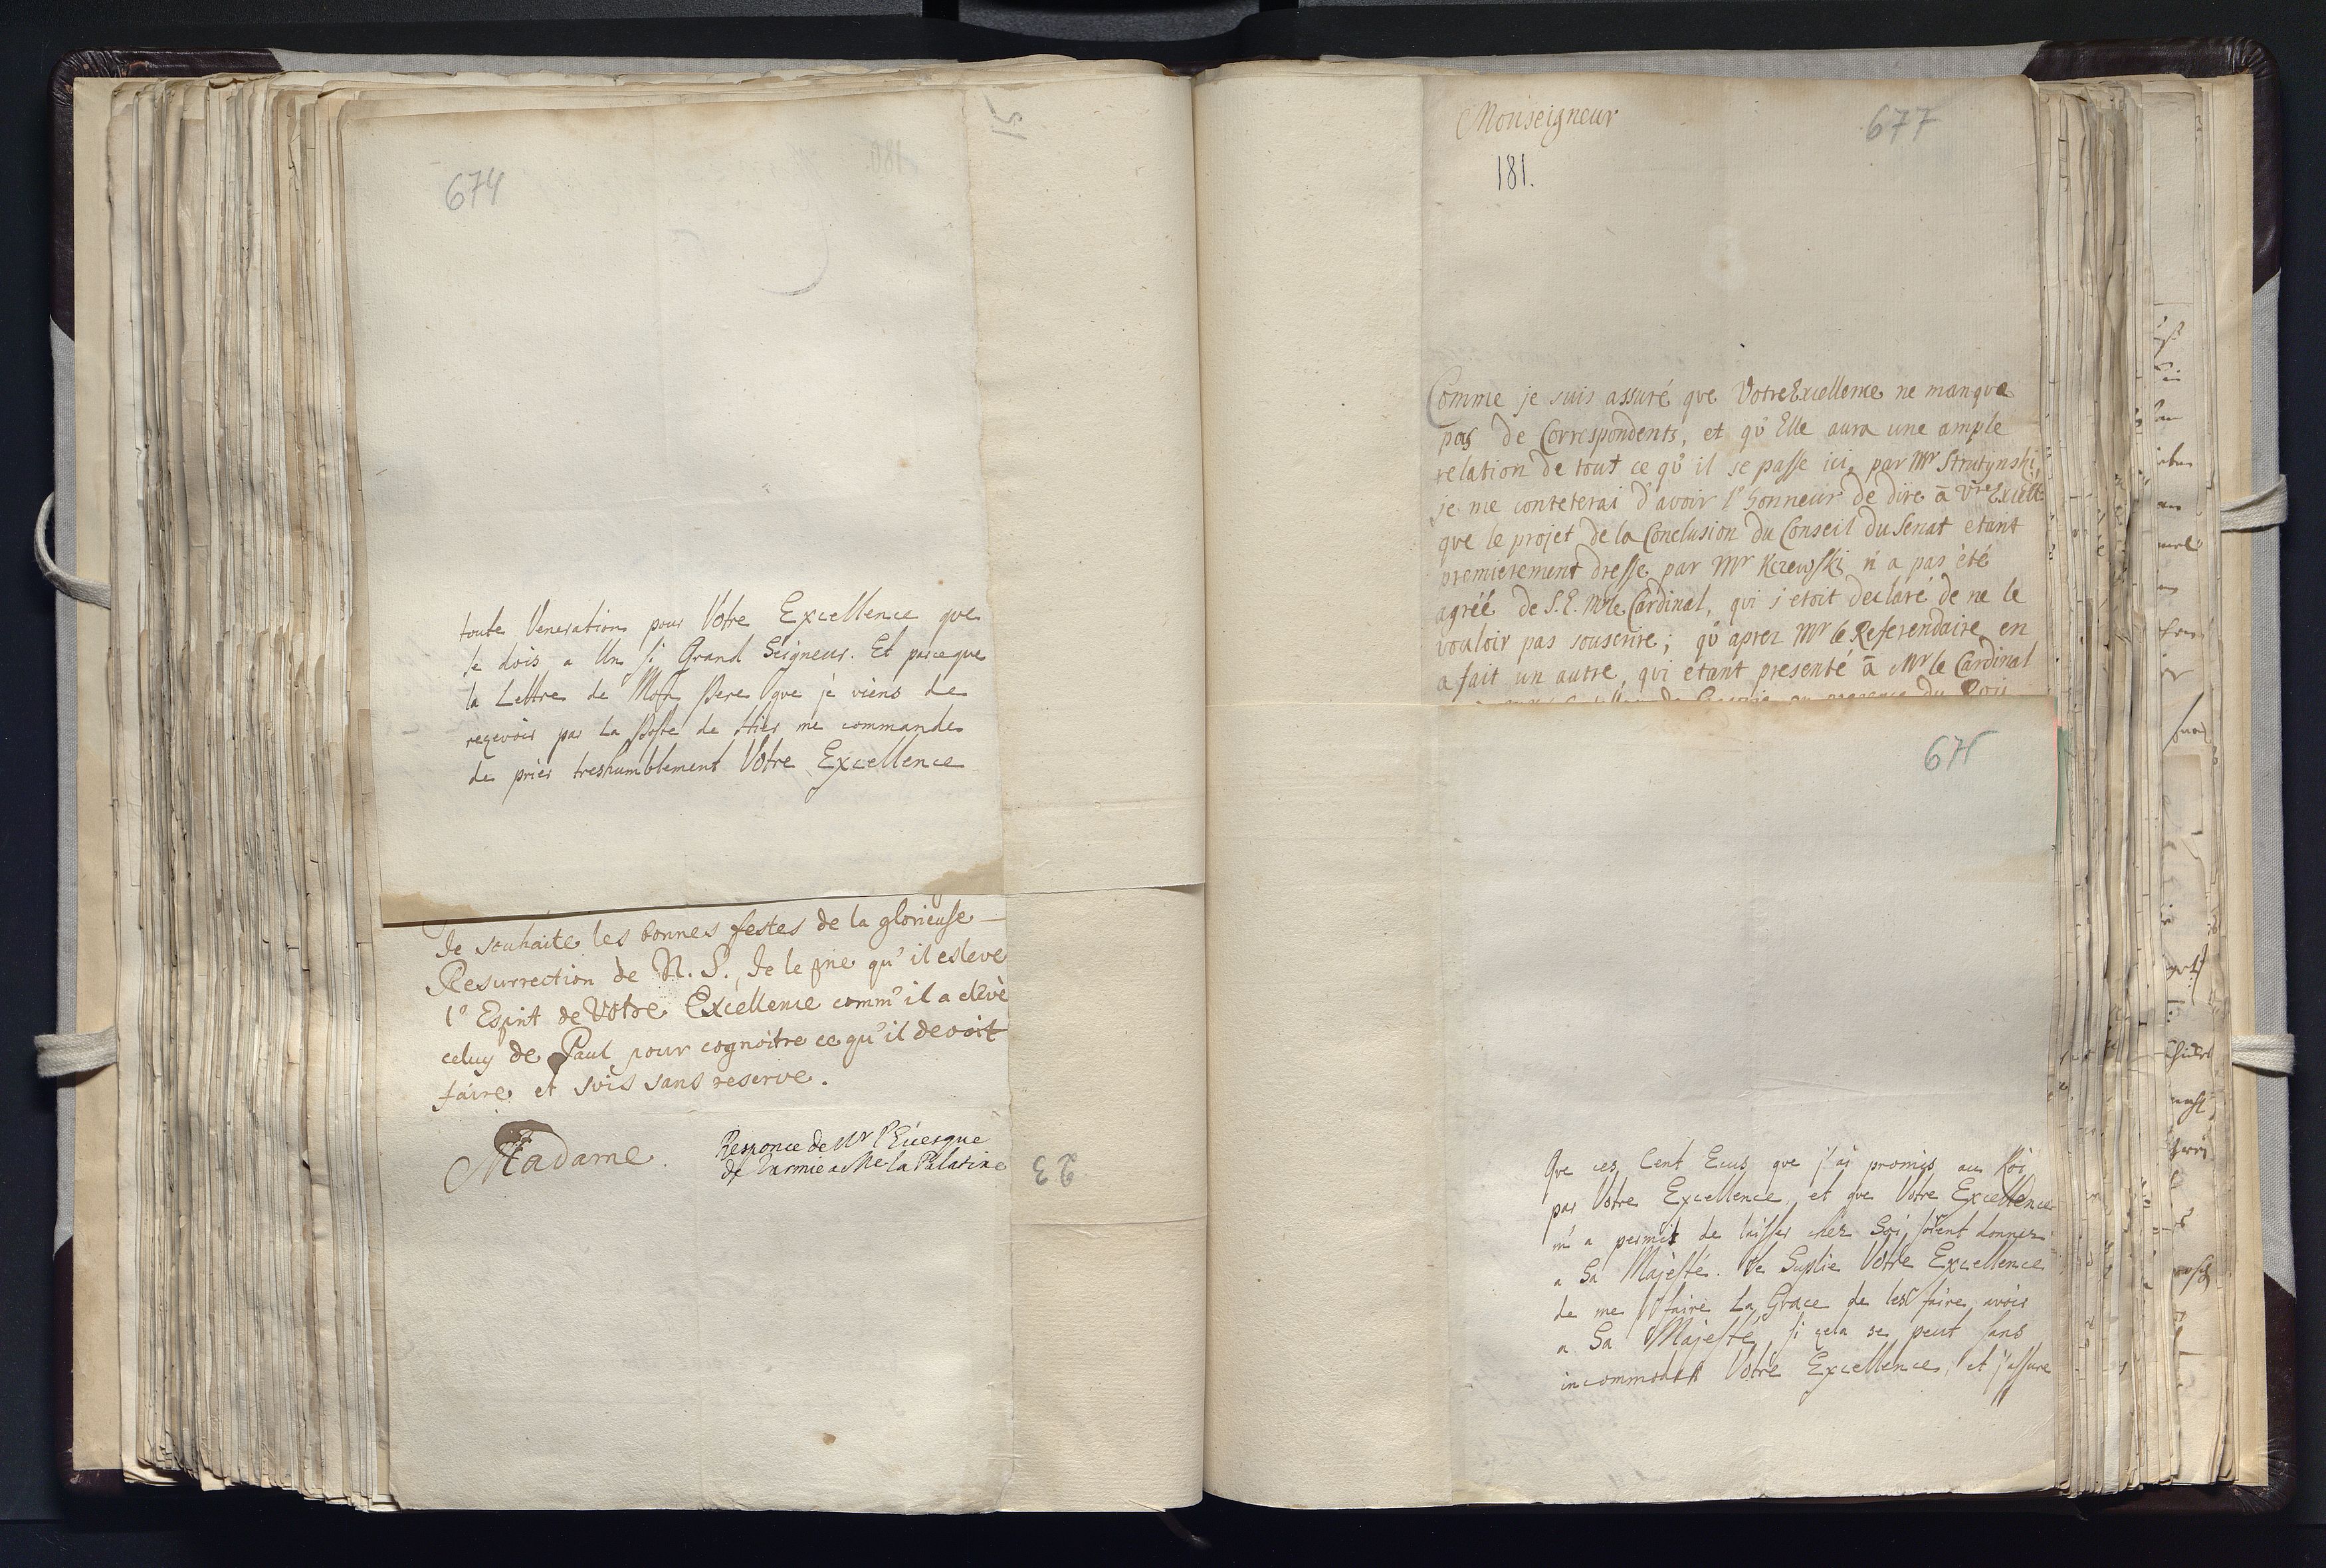 674
toute Veneration pour Votre Excellence que
je dois a Un si Grand Seigneur. Et parceque
la Lettre de Mon Pere que je viens de
reçevoir par La Poste de Hier me commande
de prier treshumblement Votre Excellence
Je souhaite les bonnes festes de la glorieuse
Resurrection de N. S. Je le prie qu'il esleve
l'Esprit de Votre Excellence comm' il a elevé
celuy de Paul pour cognoitre ce qu'il devoit
faire et suis sans reserve.
Madame.
Responce de Mr l'Evesque
de Varmie a Me la Palatine
23
Monseigneur
677
181.
Comme je suis assuré que Votre Excellence ne manque
pas de Correspondents, et qu' Elle aura une ample
relation de tout ce qu' il se passe ici, par Mr Strutynski,
je me conteterai d'avoir l'honneur de dire à Vre Excell:
que le projet de la Conclusion du Conseil du Senat etant
premierement dresse par Mr n'a pas été
agréé de S. E. Mr le Cardinal, qui s'etoit declaré de ne le
vouloir pas souscrire; qu' aprez Mr le Referendaire en
a fait un autre, qui etant presenté à Mr le Cardinal
en presence du Roi
Que ces Cent Ecus que j'ai promis au Roi
par Votre Excellence et que Votre Excellence
m'a permit de laisser chez Soi, soient donnez
a Sa Majesté. Je Suplie Votre Excellence
de me faire La Grace de les faire avoir
a Sa Majesté, si cela se peut sans
Votre Excellence, et j'assure